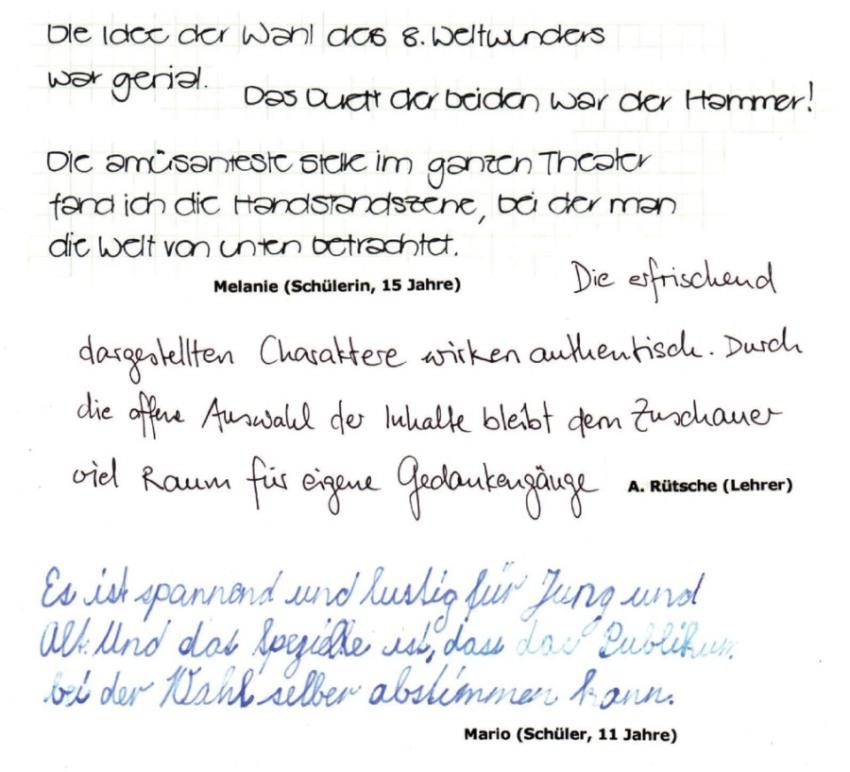 Die Idee der Wahl des 8. Weltwunders
war genial.
Das Duett der beiden war der Hammer!
Die amüsanteste stelle im ganzen Theater
fand ich die Handstandszene, bei der man
die Welt von unten betrachtet.
Melanie (Schülerin, 15 Jahre)
Die erfrischend
dargestellten Charaktere wirken authentisch. Durch
die offene Auswahl der Inhalte bleibt dem Zuschauer
viel Raum für eigene Gedankengänge
A. Rütsche (Lehrer)
Es ist spannend und lustig für Jung und
Alt. Und das Spezielle ist, dass das Publikum
bei der Wahl selber abstimmen kann.
Mario (Schüler, 11 Jahre)